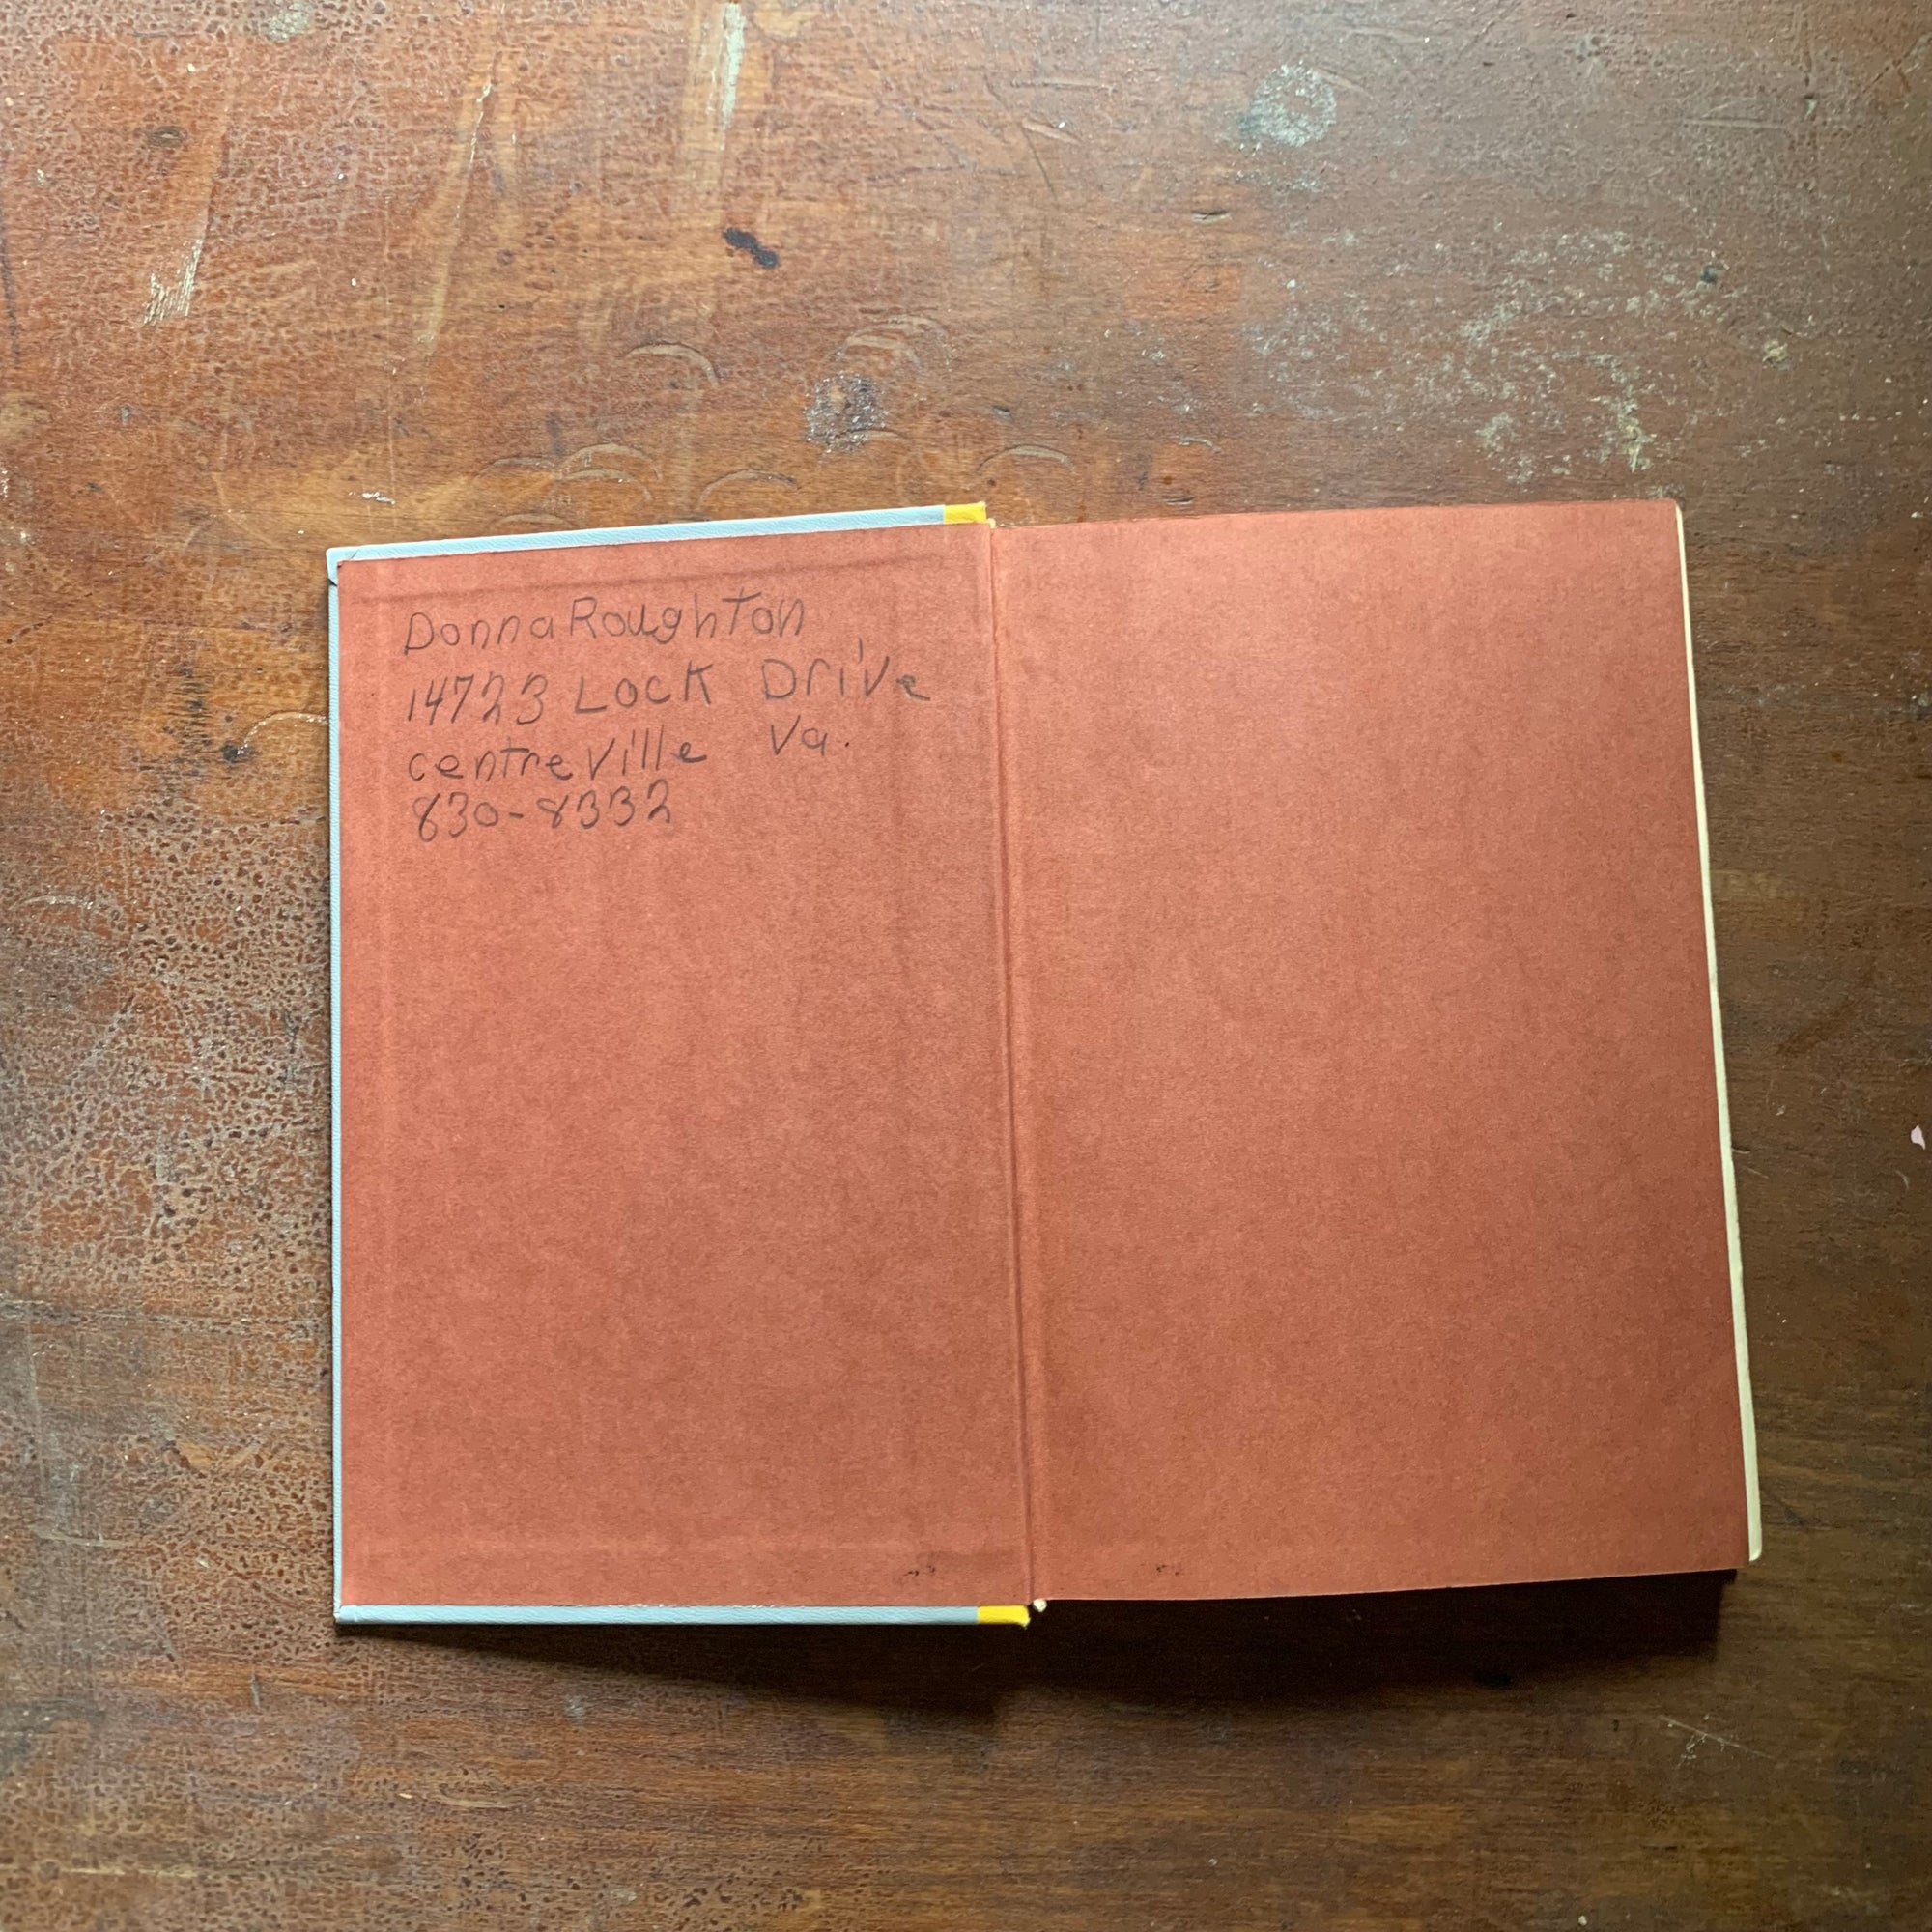 Donna Roughton
14723 Lock Drive
centreville Va.
830-8332